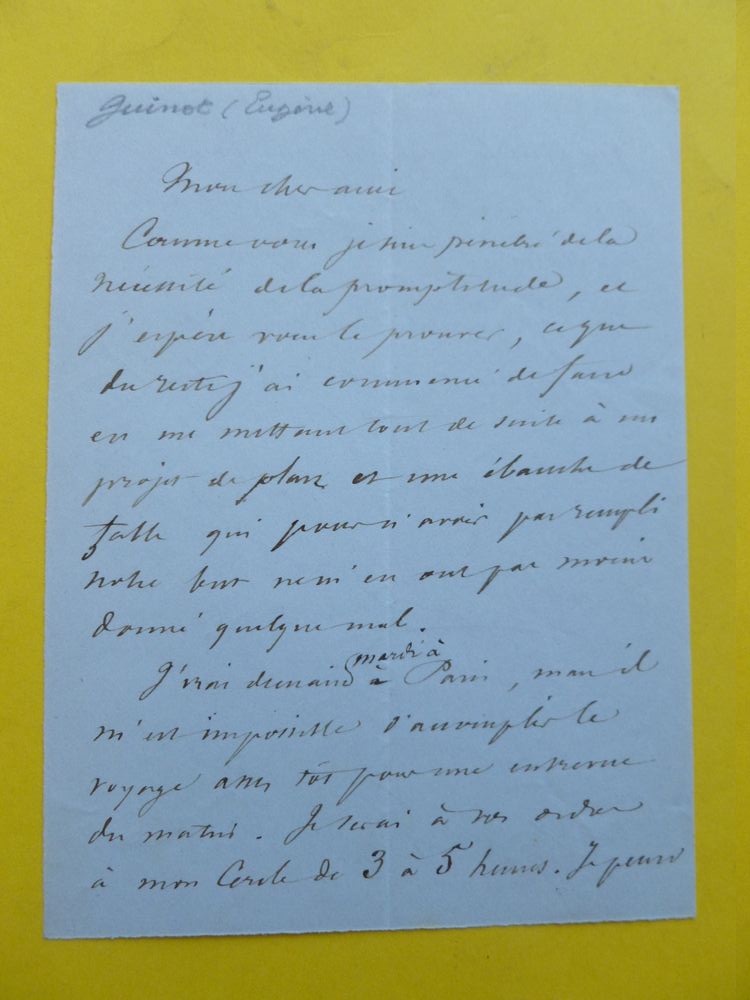 Guinot (Eugène)
Mon cher ami
Comme vous je suis pénétré de la
nécessité de la promptitude, et
j'espère vous le prouver, ce que
du reste j'ai commencé de faire
en me mettant tout de suite à un
projet de plan et une ébauche de
table qui pour n'avoir pas rempli
notre but ne m'en ont pas moins
donné quelque mal.
J'irai demain mardi à Paris, mais il
m'est impossible d'accomplir le
voyage assez tôt pour une entrevue
du matin. Je serai à vos ordres
à mon Cercle de 3 à 5 heures. Je pense